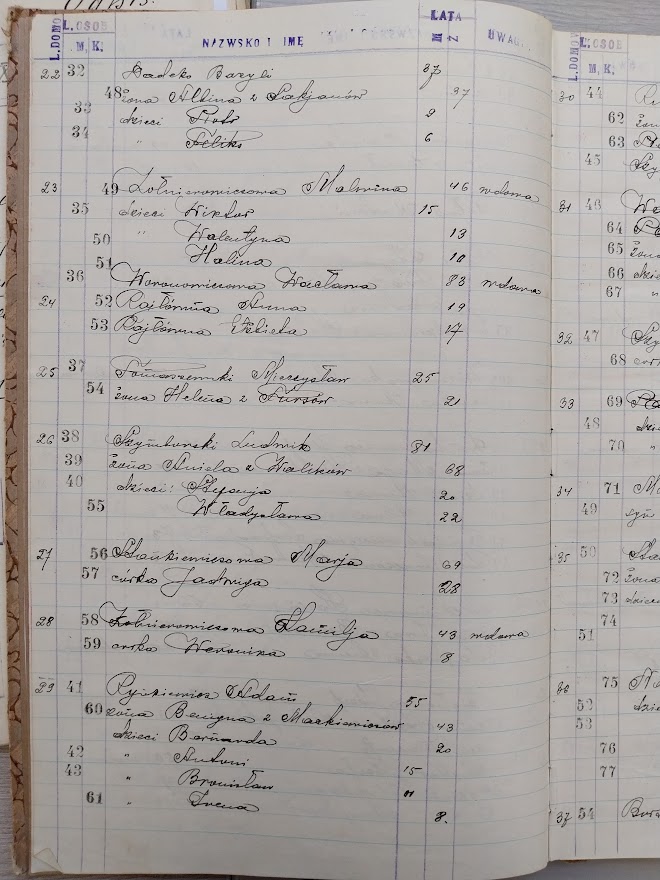 L. DOMO L. OSOB LATA
M. K. NAZWSKO I IMĘ M Z UWAGI
22 32 Dadeko Bazyli 37
48 żona Albina z Łukjanów 37
33 dzieci Piotr 9
34 " Feliks 6
23 49 Żołnierowiczowa Malwina 46 wdowa
35 dzieci Wiktor 15
50 " Walentyna 13
51 Halina 10
36 Woronowiczowa Wacława 83 wdowa
24 52 Rajłówna Anna 19
53 Rajłówna Elżbieta 17
25 37 Tomaszewski Mieczysław 25
54 żona Helena z Fursów 21
26 38 Szymborski Ludwik 81
39 żona Aniela z Walików 68
40 dzieci: Stefanja 20
55 Władysława 22
27 56 Stankiewiczowa Marja 69
57 córka Jadwiga 28
28 58 Żołnierowiczowa Kamilja 43 wdowa
59 córka Weronika 8
29 41 Rynkiewicz Adam 55
60 żona Benigna z Mackiewiczów 43
dzieci Barnarda 20
42 " Antoni 15
43 " Bronisław 11
61 " Irena 8.
L. DOMOW L. OSOB
M. K.
30 44
62 żona
63
45 Szy
31 46
64
65 żona
66 dzie
67 "
32 47 Szy
68 cór
33 69
48 dzie
70 "
34 71
49 syn
35 50
72 żona
73 dzieci
74
51
36 75
52 dzie
53
76
77
37 54